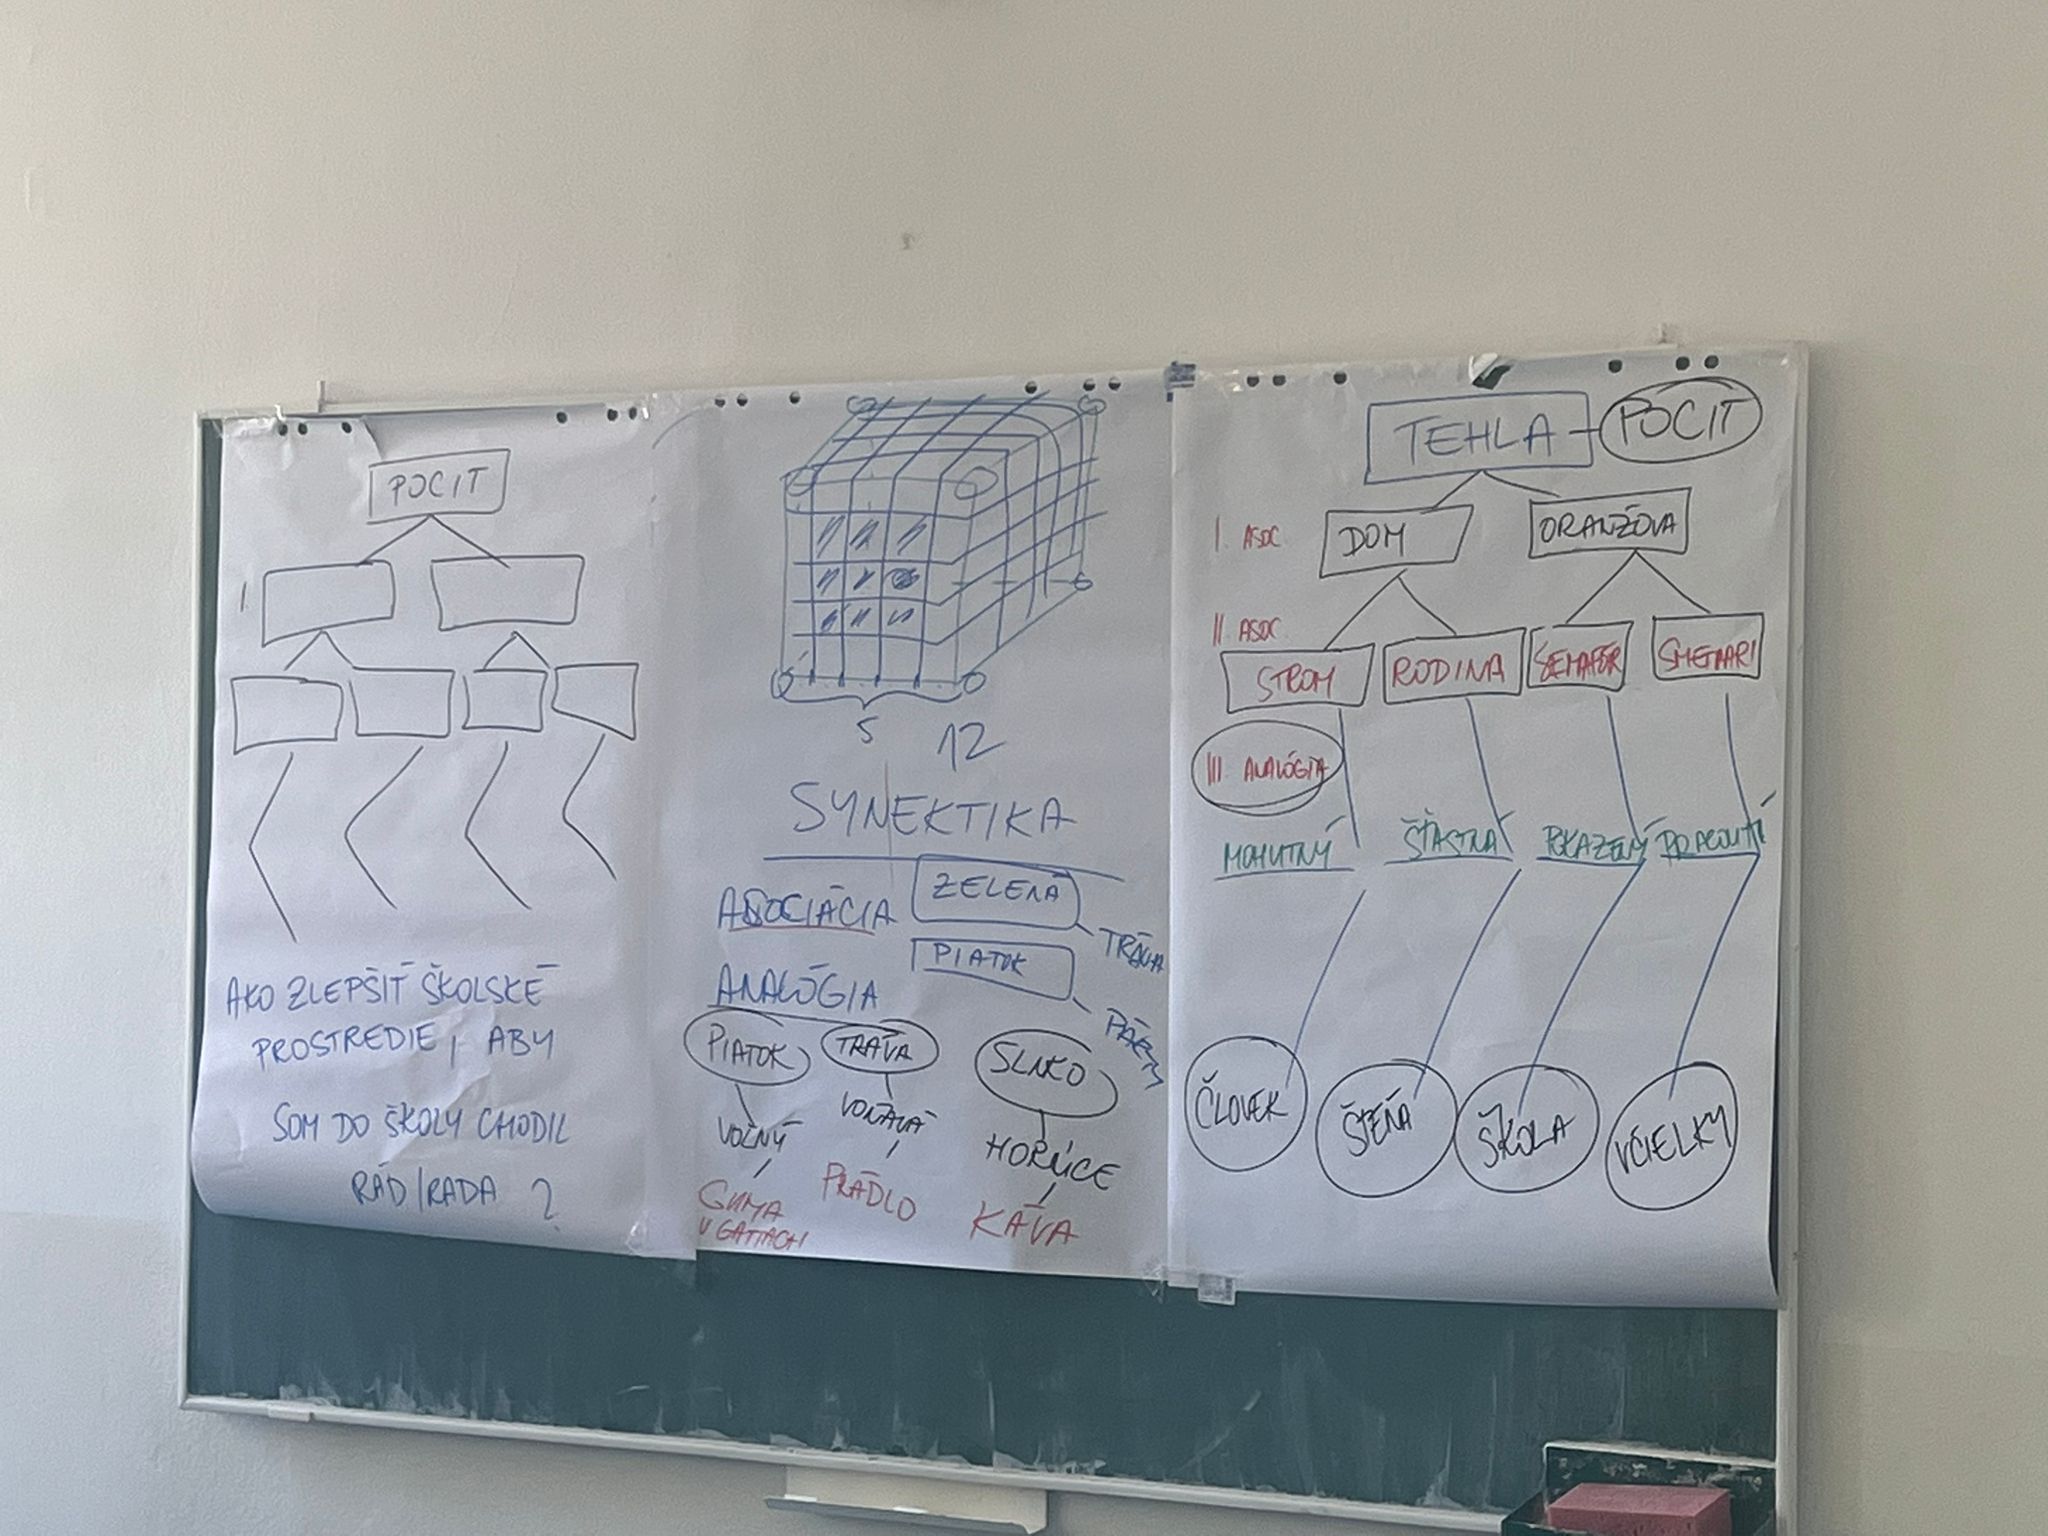 POCIT
I
AKO ZLEPŠIŤ ŠKOLSKÉ
PROSTREDIE, ABY
SOM DO ŠKOLY CHODIL
RÁD/RADA ?
5
12
SYNEKTIKA
ASOCIÁCIA
ZELENÁ
TRÁVA
PIATOK
ANALÓGIA
PIATOK
TRÁVA
SLNKO
VOĽNÝ
VOŇAVÁ
HORÚCE
GUMA
V GATIACH
PRÁDLO
KÁVA
TEHLA - POCIT
I. ASOC
DOM
ORANŽOVÁ
II. ASOC
STROM
RODINA
SEMAFÓR
SMETIARI
III. ANALÓGIA
MOHUTNÝ
ŠŤASTNÁ
POKAZENÝ
PRACOVITÍ
ČLOVEK
ŠTEŇA
ŠKOLA
VČIELKY